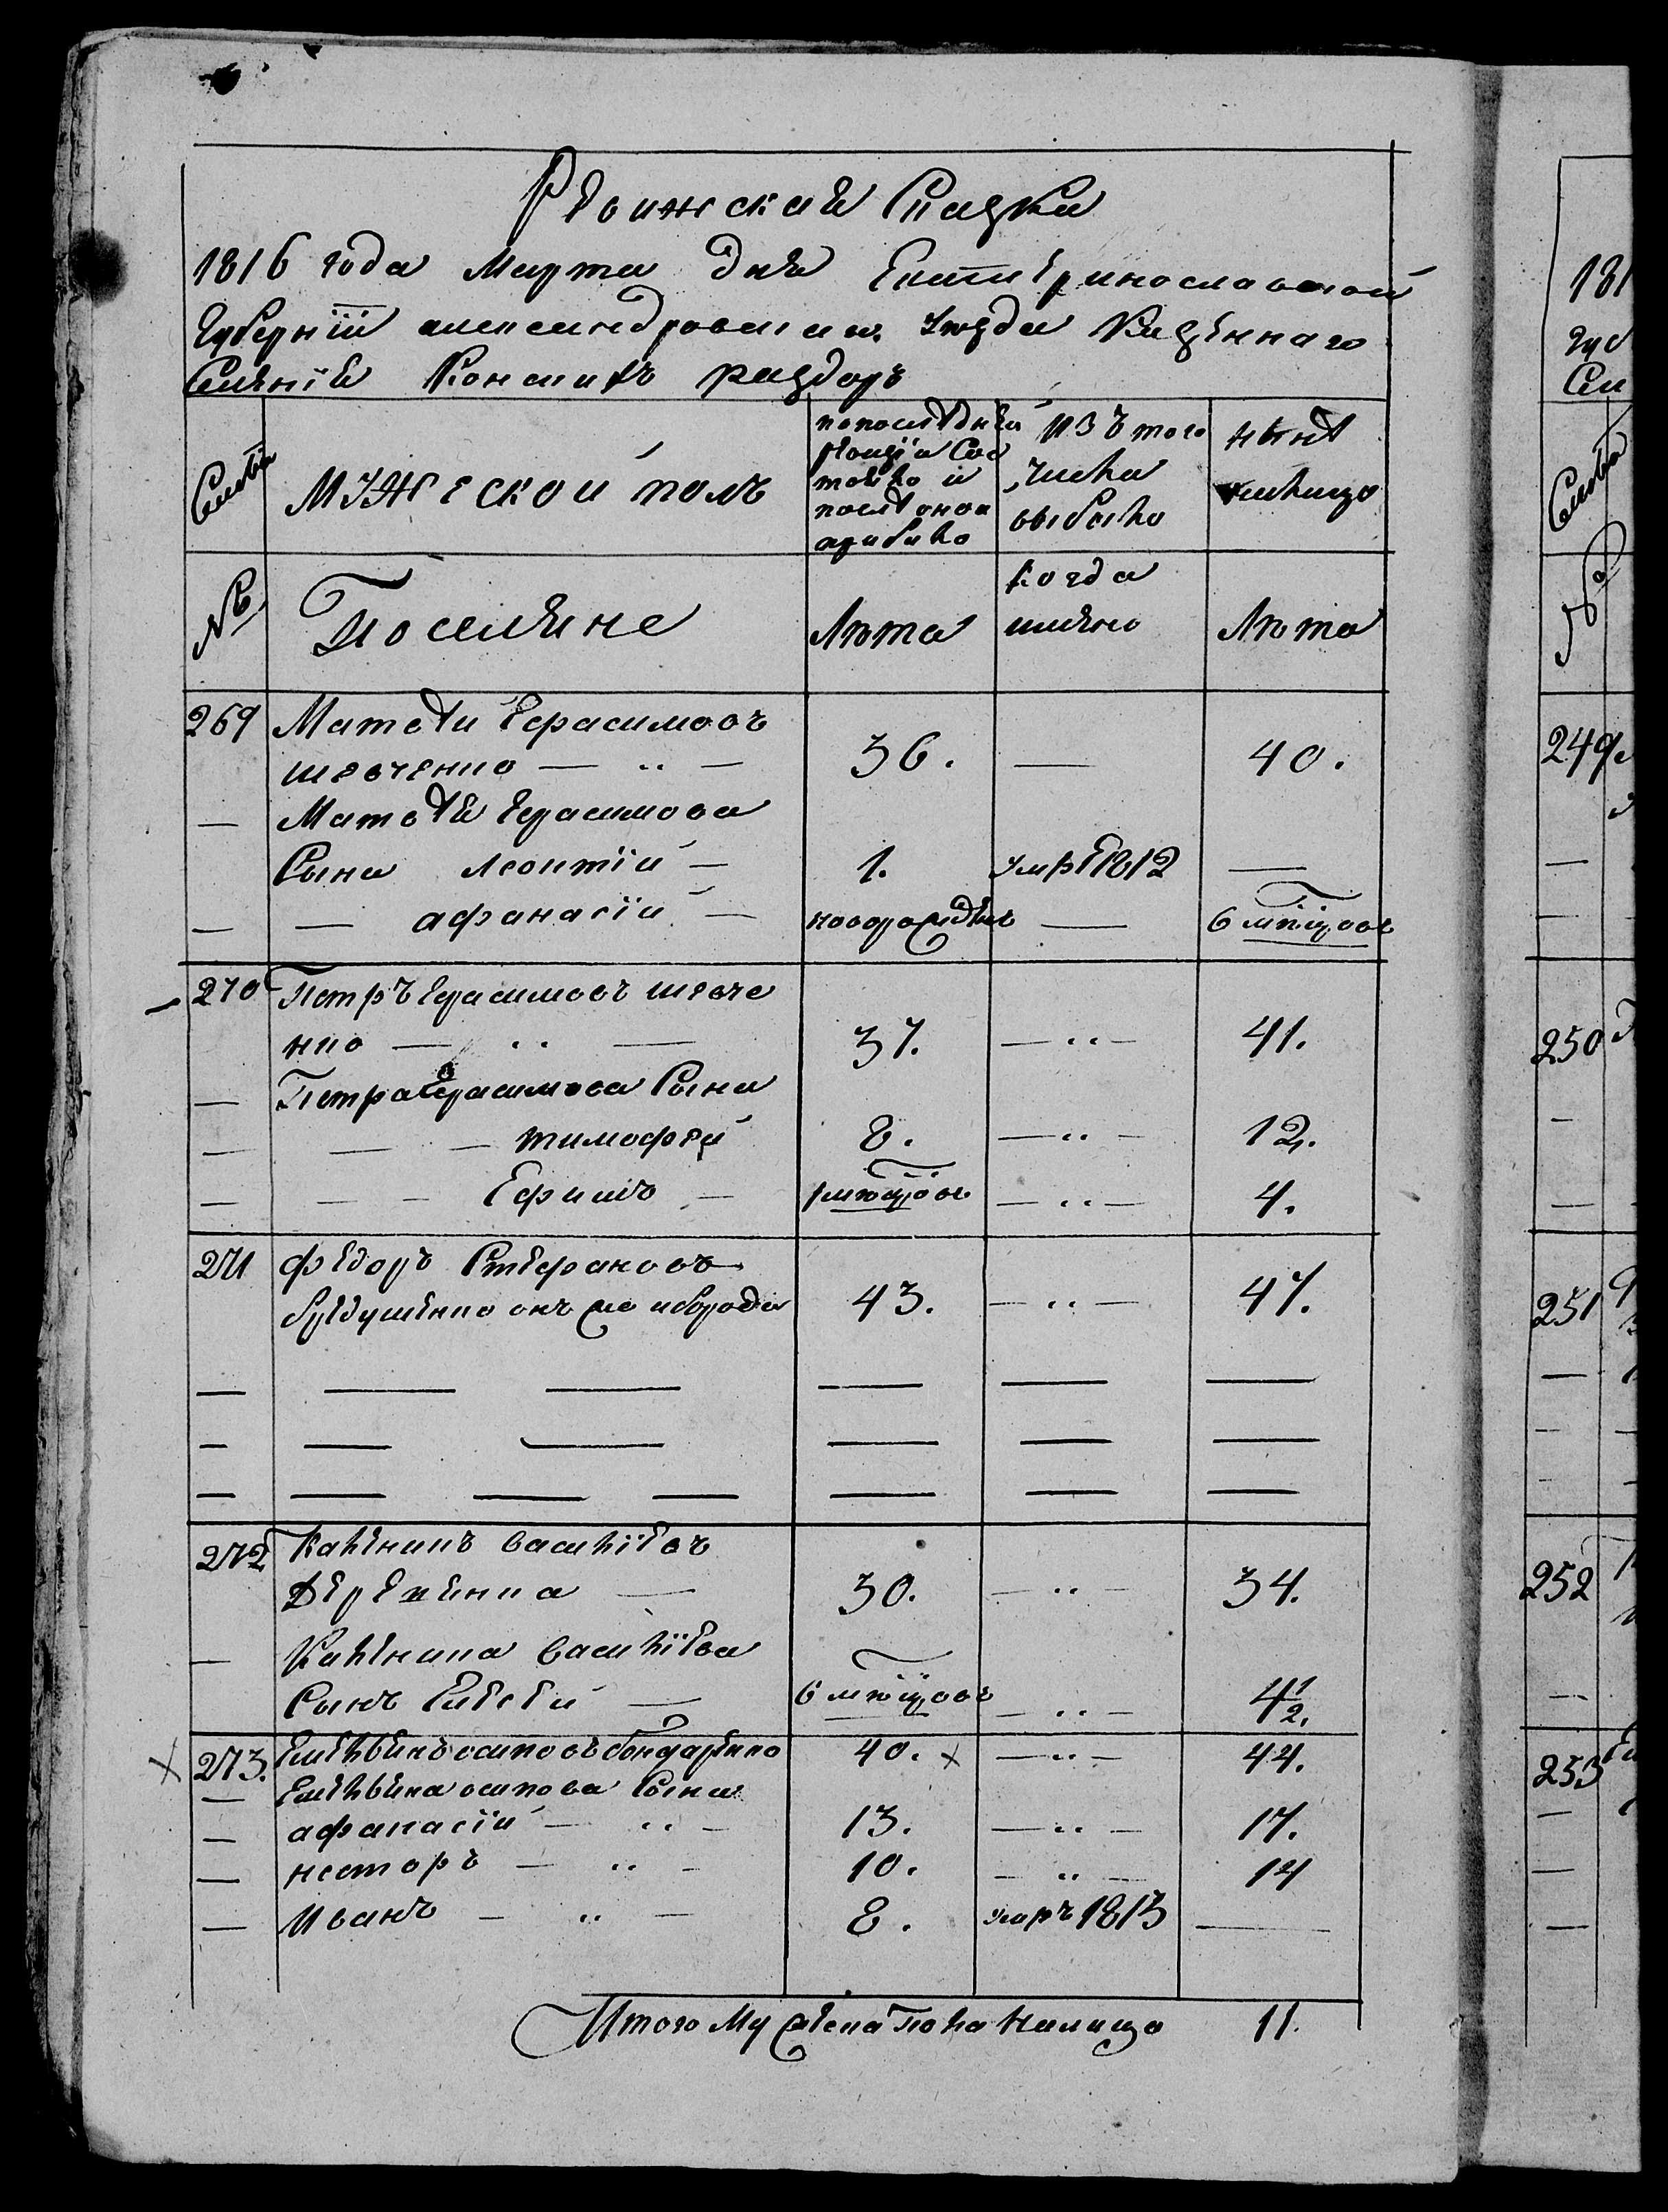 Ревижская Сказка
1816 года Марта дня Екатеринославской
Губернїи александровскаго уезда Казеннаго
Селенїя Конскихъ раздоръ
Семьи
МУЖескои полъ
попоследней
ревизїи Сос
тояло и
после оной
прибыло
ИЗЪ того
числа
выбыло
ныне
налицо
№
Поселяне
Лѣта
когда
имянно
Лѣта
269 Матвей Герасимовъ
шевченко — 36. — 40.
— Матвея Герасимова
Сыны леонтїй — 1. умре 1812 —
— — афанасїй — новорожденъ — 6 мѣсяцовъ
270 Петръ Герасимовъ шевче
нко — 37. — 41.
— Петра Герасимова Сыны
— — — тимофей 8. — 12.
— — — Ефимъ — 1 мѣсяцовъ — 4.
271 Федоръ Стефановъ
онъ же 43. — 47.
272 Каленикъ василїевъ
30. — 34.
— Каленика василїева
Сынъ Елесей — 6 мѣсяцовъ — 4 1/2.
273. Емельянъ осиповъ бондаренко 40. x — 44.
— Емельяна осипова Сыны
— афанасїй — 13. — 17.
— несторъ — 10. — 14
— Иванъ — 8. умръ 1813 —
Итого Мужеска Пола Налицо 11.
181
249
250
251
252
253